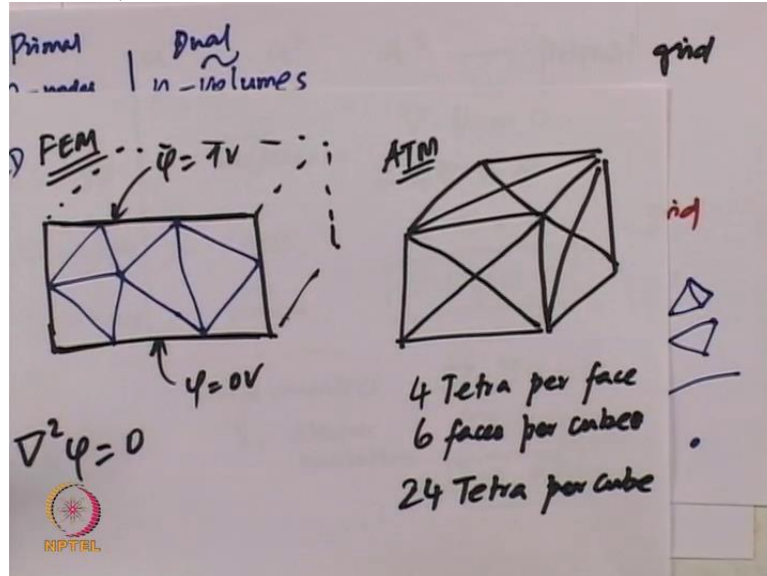 Primal
Dual
n-volumes
grid
FEM
φ = 1V
ATM
φ = 0V
∇²φ = 0
4 Tetra per face
6 faces per cubes
24 Tetra per cube
NPTEL